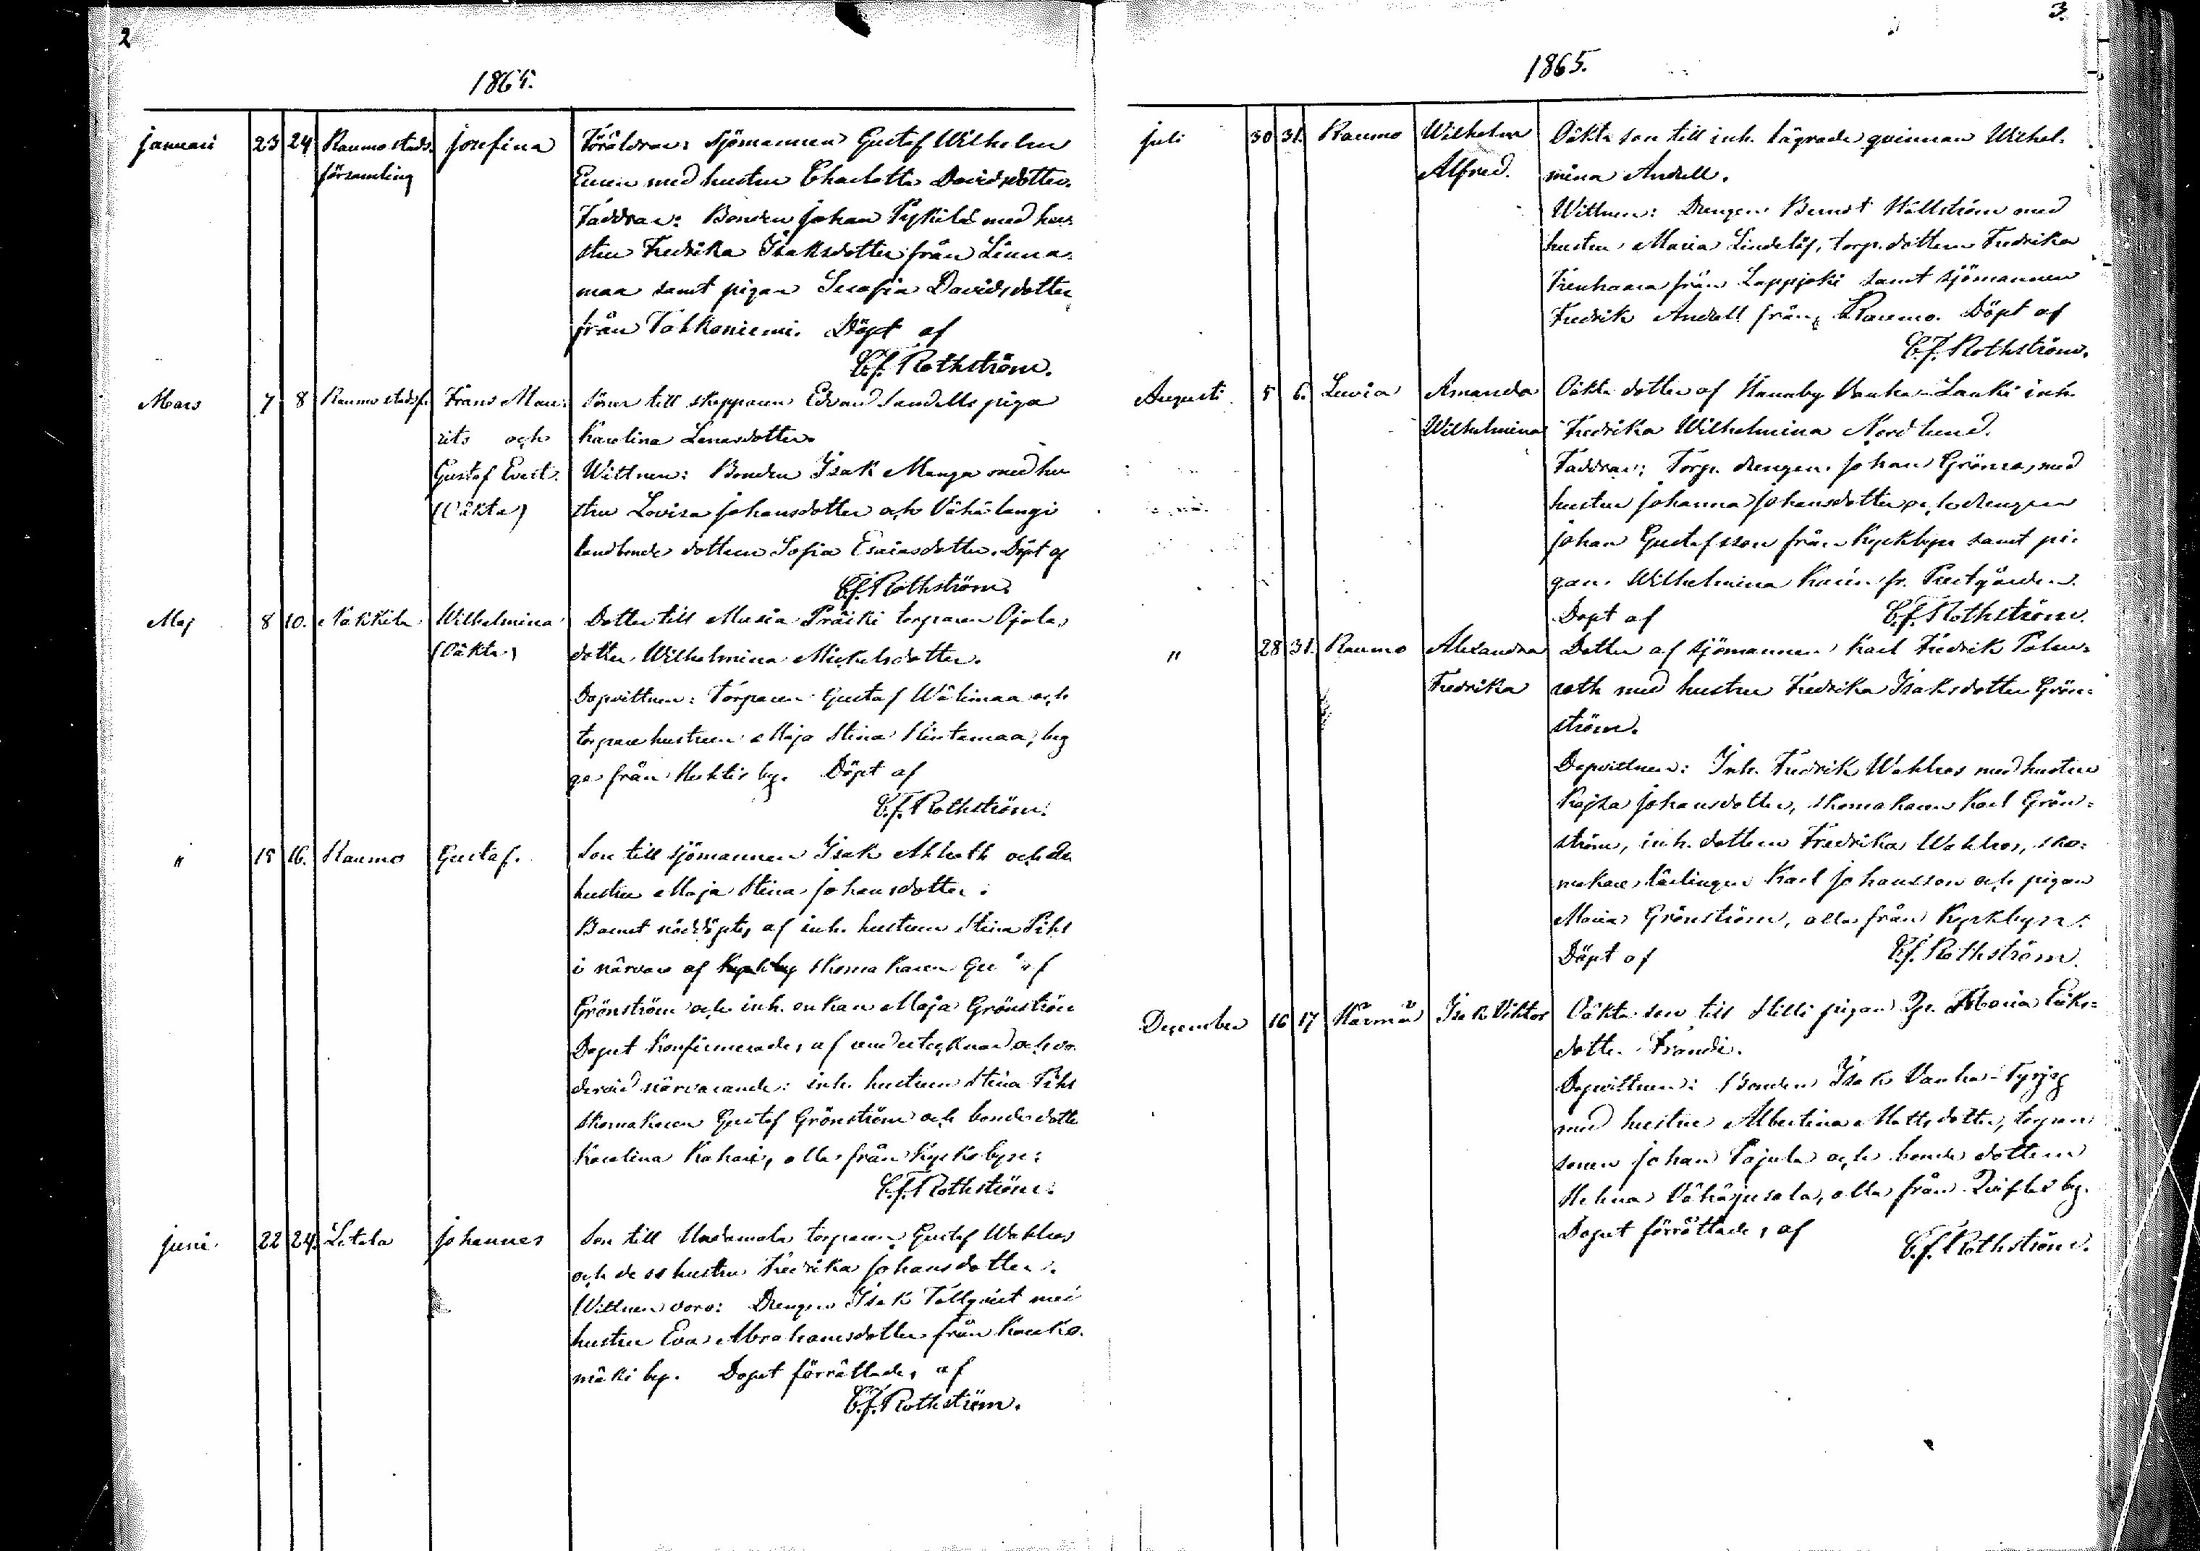 2
1865.
Januari 23 24 Raumo stads- Josefina Föräldrar: Sjömannen Gustaf Wilhelm
församling med hustru Charlotta Davidsdotter.
Faddrar: Bonden Johan med hu-
stru Fredrika Isaksdotter från Linna-
maa samt pigan Serafia Davidsdotter
från Döpt af
C.f. Rothström.
Mars 7 8 Raumo stadsf. Frans Mau- Söner till skepparen Edvard Sandells piga
rits och Karolina
Gustaf Evert. Wittnen: Bonden Isak Manga med hu-
(Oäkta) stru Lovisa Johansdotter och Vähä-langi
landbonde dottern Sofia Esaiasdotter. Döpt af
C.f. Rothström.
Maj 8 10. Wilhelmina Dotter till torparen
(Oäkta) dotter Wilhelmina Mickelsdotter.
Dopvittnen: Torparen Gustaf Wälimaa och
torpare hustrun Maja Stina Hintamaa, beg-
ge från by. Döpt af
C.f. Rothström.
" 15 16. Raumo Gustaf. Son till sjömannen Isak och
hustru Maja Stina Johansdotter.
Barnet nöddöptes af inh. hustrun Stina Pihl
i närvaro af skomakaren
Grönström och inh. enkan Maja Grönström
Dopet konfirmerades af undertecknad och vo.
dervid närvarande: inh. hustrun Stina Pihl
skomakaren Gustaf Grönström och bonde dotte
Karolina alla från Kyrkobyn:
C.f. Rothström.
Juni. 22 24. Letala Johannes Son till torparen Gustaf Wahlros
och dess hustru Fredrika Johansdotter.
Wittnen voro: Drengen Isak Tallqvist med
hustru Eva Abrahamsdotter från
mäki by. Dopet förrättades af
C.f. Rothström.
3.
1865.
Juli 30 31. Raumo Wilhelm Oäkta son till inh. lägrade qvinnan Wilhel-
Alfred. mina Andell.
Wittnen: Drengen Berndt Hällström med
hustru Maria Lindelöf, torp. dottern Fredrika
från Lappjoki samt sjömannen
Fredrik Andell från Raumo. Döpt af
C.f. Rothström.
Augusti 5 6. Luvia Amanda Oäkta dotter af Hannby Vanha-Lauki inh.
Wilhelmina Fredrika Wilhelmina Nordlund.
Faddrar: Torp. drengen Johan Grönroos, med
hustru Johanna Johansdotter och drengen
Johan Gustafsson från Kyrkbyn samt pi-
gan Wilhelmina fr. Prestgården.
Döpt af C.f. Rothström.
" 28 31. Raumo Alexandra Dotter af sjömannen Karl Fredrik
Fredrika roth med hustru Fredrika Isaksdotter Grön-
ström.
Dopvittnen: Inh. Fredrik Wahlros med hustru
Kajsa Johansdotter, skomakaren Karl Grön-
ström, inh. dottern Fredrika Wahlros, sko-
makare lärlingen Karl Johansson och pigan
Maria Grönström, alla från Kyrkbyn.
Döpt af C.f. Rothström.
December 16 17 Isak Viktor Oäkta son till pigan Maria Eriks-
dotter
Dopvittnen: Bonden Isak Vanha-
med hustru Albertina Mattsdotter, torpare
sonen Johan Pajula och bonde dottern
Helena alla från by.
Dopet förrättades af C.f. Rothström.